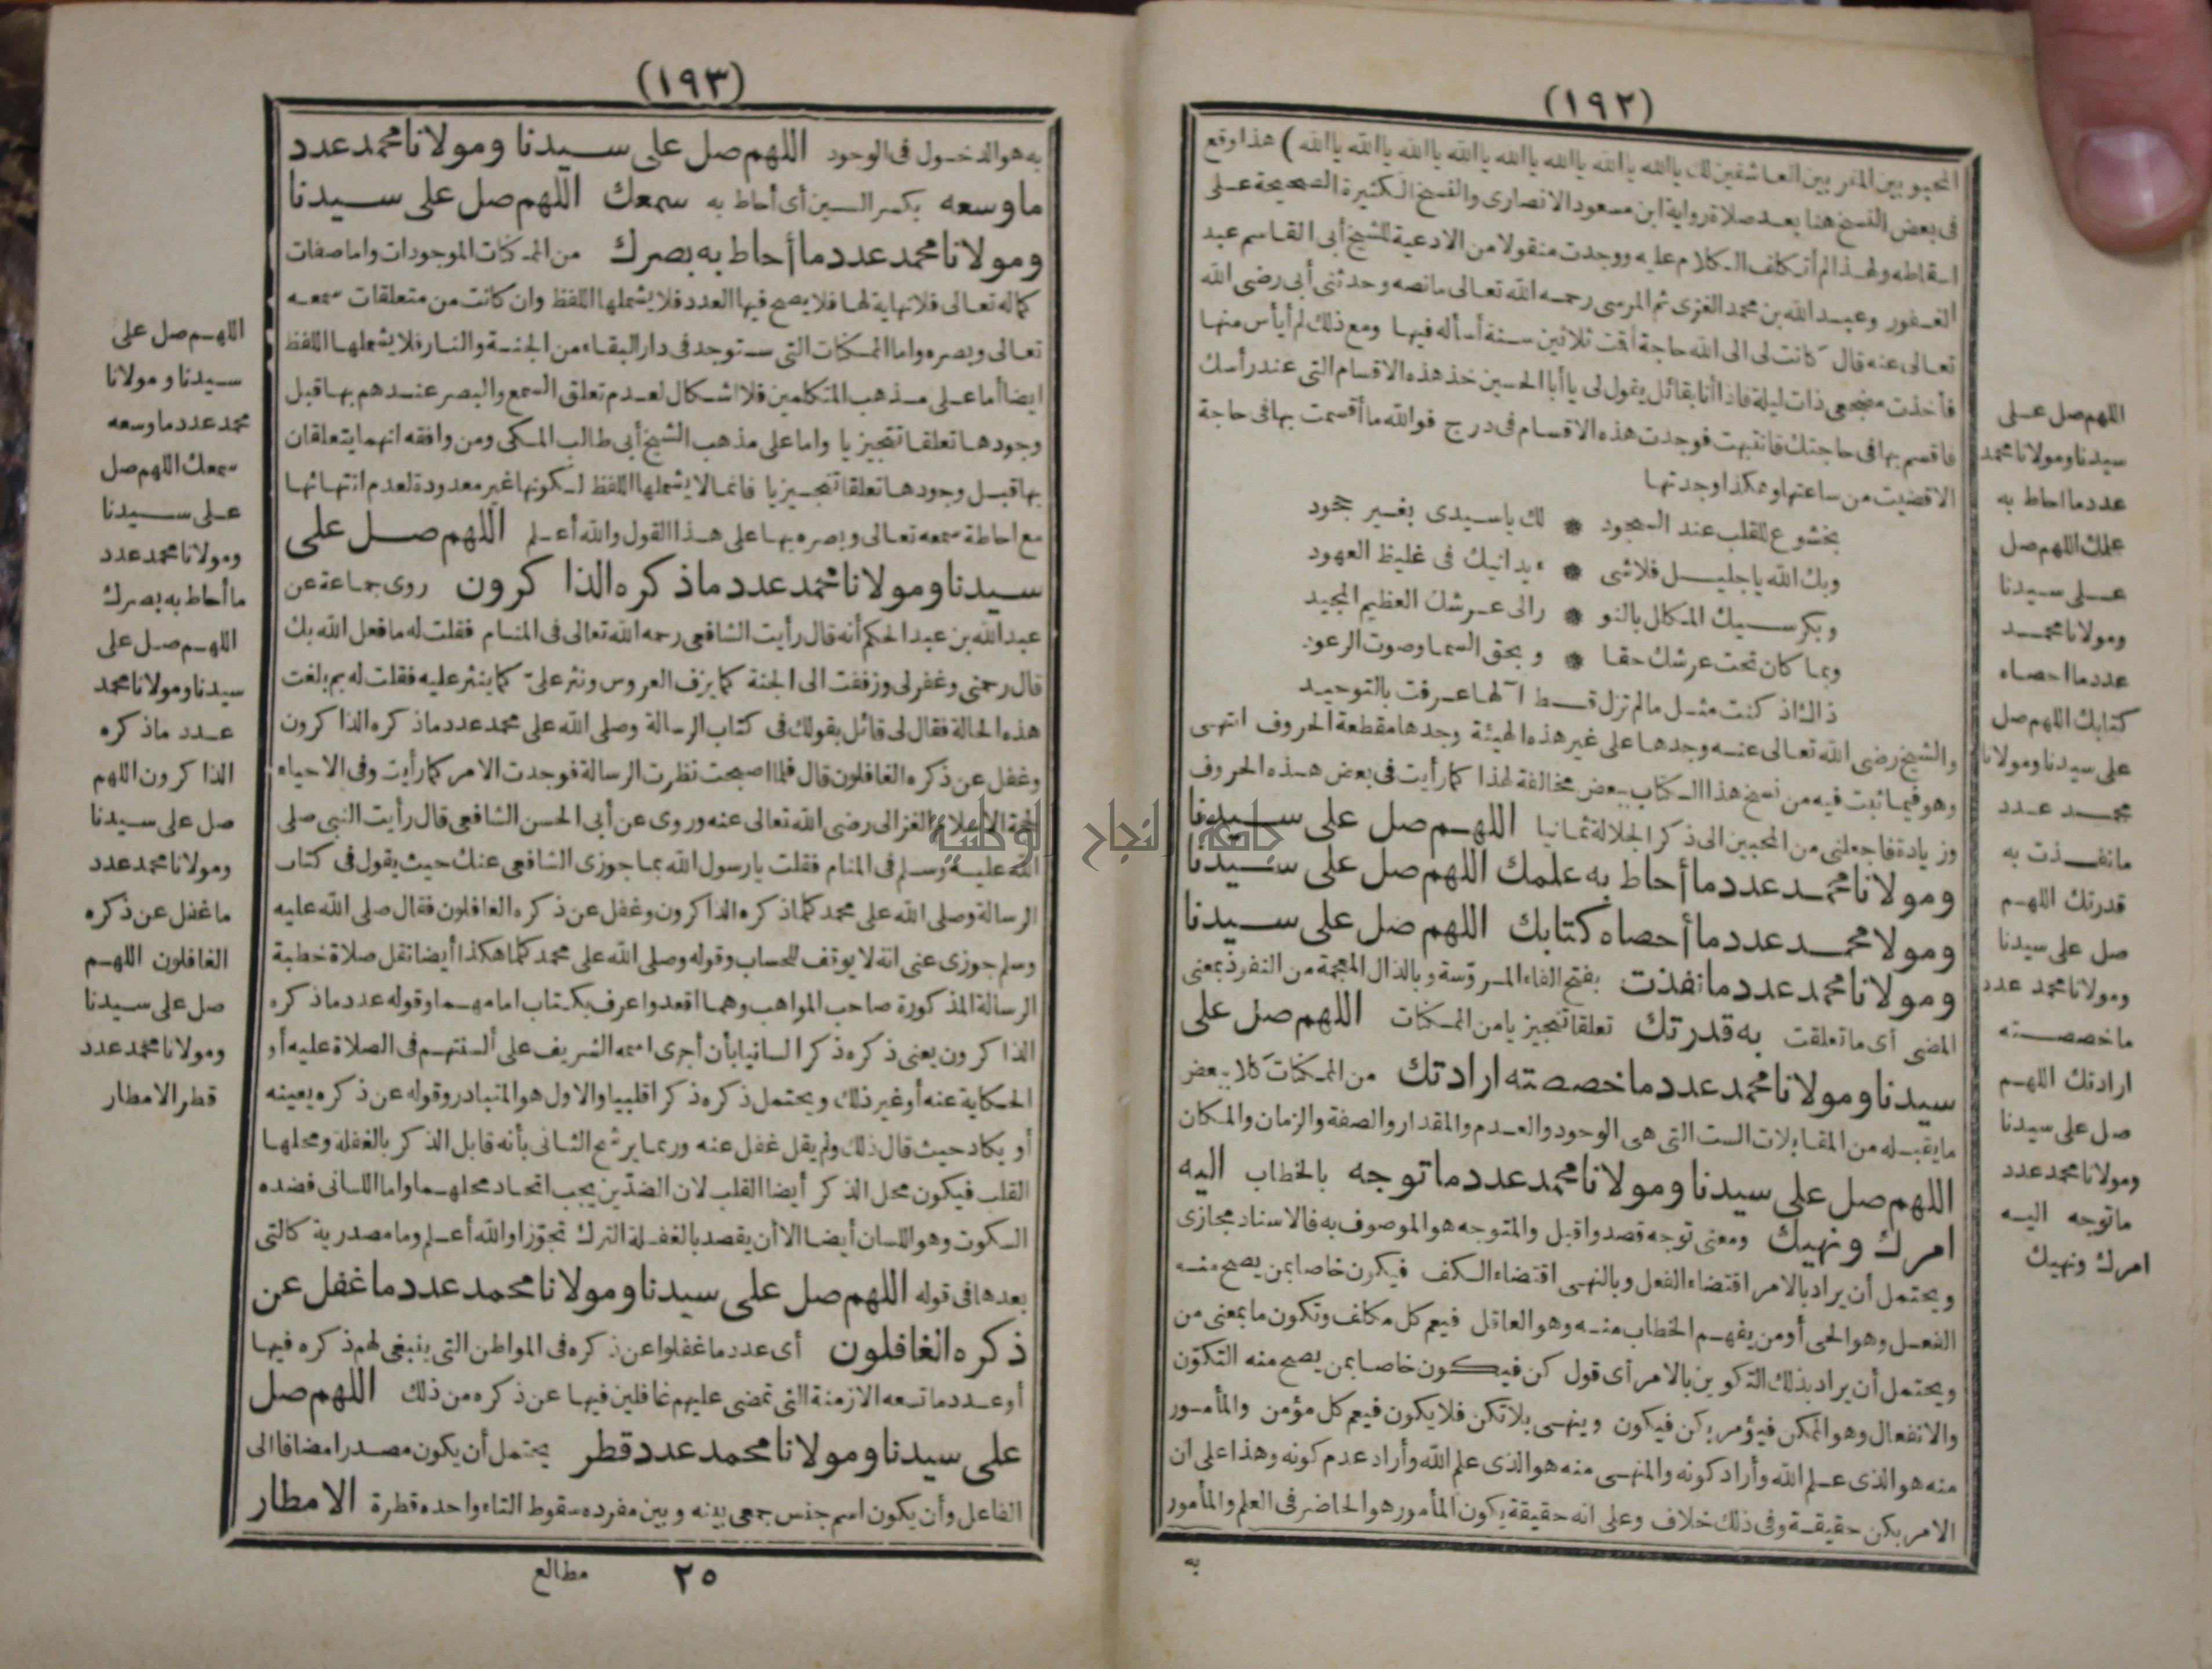 (١٩٢)
المحبوبين المقربين العاشقين لك ياالله ياالله ياالله ياالله ياالله ياالله ياالله ياالله ياالله ) هذا وقع
فى بعض النسخ هنا بعد صلاة رواية ابن مسعود الانصارى والنسخ الكثيرة الصحيحة على
اسقاطه ولهذا لم أتكلف الكلام عليه ووجدت منقولا من الادعية للشيخ أبى القاسم عبد
الغفور وعبد الله بن محمد الغزى ثم المرسى رحمه الله تعالى مانصه وحدثنى أبى رضى الله
تعالى عنه قال كانت لى الى الله حاجة أقت ثلاثين سنة أسأله فيها ومع ذلك لم أيأس منها
فأخذت مضجعى ذات ليلة فاذا أنا بقائل يقول لى يا أبا الحسين خذ هذه الاقسام التى عند رأسك
فاقسم بها فى حاجتك فانتبهت فوجدت هذه الاقسام فى درج فوالله ما أقسمت بها فى حاجة
الاقضيت من ساعتها وهكذا وجدتها
بخشوع للقلب عند السجود * لك ياسيدى بغير جحود
وبك الله ياجليل فلاشى * ء يدانيك فى غليظ العهود
وبكرسيك المكال بالنو * رالى عرشك العظيم المجيد
وبما كان تحت عرشك حقا * وبحق السما وصوت الرعود
ذالث اذ كنت مثل مالم تزل قط آلها عرفت بالتوحيد
والشيخ رضى الله تعالى عنه وجدها على غير هذه الهيئة وجدها مقطعة الحروف انتهى
وهو فيما ثبت فيه من نسخ هذا الكتاب ببعض مخالفة لهذا كما رأيت فى بعض هذه الحروف
وزيادة فاجعلنى من المحبين الى ذكر الجلالة ثمانيا اللهم صل على سيدنا
ومولانا محمد عدد ما أحاط به علمك اللهم صل على سيدنا
ومولا محمد عدد ما أحصاه كتابك اللهم صل على سيدنا
ومولانا محمد عدد مانفذت بفتح الفاء المرؤسة وبالذال المعجمة من النفوذ بمعنى
المضى أى ما تعلقت به قدرتك تعلقا تنجيزيا من الممكنات اللهم صل على
سيدنا ومولانا محمد عدد ما خصصته ارادتك من الممكنات كلا ببعض
مايقبله من المقابلات الست التى هى الوجود والعدم والمقدار والصفة والزمان والمكان
اللهم صل على سيدنا ومولانا محمد عدد ما توجه بالخطاب اليه
امرك ونهيك ومعنى توجه قصد واقبل والمتوجه هو الموصوف به فالاسناد مجازى
ويحتمل أن يراد بالامر اقتضاء الفعل وبالنهى اقتضاء الكف فيكون خاصا بمن يصح منه
الفعل وهو الحى أو من يفهم الخطاب منه وهو العاقل فيعم كل مكلف وتكون ما بمعنى من
ويحتمل أن يراد بذلك التكوين بالامر أى قول كن فيكون خاصا بمن يصح منه التكوّن
والانفعال وهو الممكن فيؤمر بكن فيكون وينهى بلا تكن فلا يكون فيعم كل مؤمن والمأمور
منه هو الذى علم الله وأراد كونه والمنهى منه هو الذى علم الله وأراد عدم كونه وهذا على ان
الامر بكن حقيقة وفى ذلك خلاف وعلى انه حقيقة يكون المأمور هو الحاضر فى العلم والمأمور
به
اللهم صل على
سيدنا ومولانا محمد
عدد ما احاط به
علمك اللهم صل
على سيدنا
ومولانا محمد
عدد ما احصاه
كتابك اللهم صل
على سيدنا ومولانا
محمد عدد
ما نفذت به
قدرتك اللهم
صل على سيدنا
ومولانا محمد عدد
ما خصصته
ارادتك اللهم
صل على سيدنا
ومولانا محمد عدد
ما توجه اليه
امرك ونهيك
(١٩٣)
به هو الدخول فى الوجود اللهم صل على سيدنا ومولانا محمد عدد
ما وسعه بكسر السين أى أحاط به سمعك اللهم صل على سيدنا
ومولانا محمد عدد ما أحاط به بصرك من الممكنات الموجودات واما صفات
كماله تعالى فلا نهاية لها فلا يصح فيها العدد فلا يشملها اللفظ وان كانت من متعلقات سمعه
تعالى وبصره واما الممكنات التى ستوجد فى دار البقاء من الجنة والنار فلا يشملها اللفظ
ايضا أما على مذهب المتكلمين فلا اشكال لعدم تعلق السمع والبصر عندهم بها قبل
وجودها تعلقا تنجيزيا واما على مذهب الشيخ أبى طالب المكى ومن وافقه انهما يتعلقان
بها قبل وجودها تعلقا تنجيزيا فانما لا يشملها اللفظ لكونها غير معدودة لعدم انتهائها
مع احاطة سمعه تعالى وبصره بها على هذا القول والله أعلم اللهم صل على
سيدنا ومولانا محمد عدد ما ذكره الذاكرون روى جماعة عن
عبد الله بن عبد الحكم أنه قال رأيت الشافعى رحمه الله تعالى فى المنام فقلت له ما فعل الله بك
قال رحمنى وغفر لى وزففت الى الجنة كما يزف العروس ونثر علىّ كما ينثر عليه فقلت له بم بلغت
هذه الحالة فقال لى قائل بقولك فى كتاب الرسالة وصلى الله على محمد عدد ما ذكره الذاكرون
وغفل عن ذكره الغافلون قال فلما اصبحت نظرت الرسالة فوجدت الامر كما رأيت وفى الاحياء
لحجة الاسلام الغزالى رضى الله تعالى عنه وروى عن أبى الحسن الشافعى قال رأيت النبى صلى
الله عليه وسلم فى المنام فقلت يارسول الله بما جوزى الشافعى عنك حيث يقول فى كتاب
الرسالة وصلى الله على محمد كلما ذكره الذاكرون وغفل عن ذكره الغافلون فقال صلى الله عليه
وسلم جوزى عنى انه لا يوقف للحساب وقوله وصلى الله على محمد كلما هكذا أيضا نقل صلاة خطبة
الرسالة المذكورة صاحب المواهب وهما اقعد واعرف بكتاب امامهما وقوله عدد ما ذكره
الذاكرون يعنى ذكره ذكرا لسانيا بأن أجرى اسمه الشريف على ألسنتهم فى الصلاة عليه أو
الحكاية عنه أو غير ذلك ويحتمل ذكره ذكرا قلبيا والاول هو المتبادر وقوله عن ذكره يعينه
أو يكاد حيث قال ذلك ولم يقل غفل عنه وربما يرشح الثانى بأنه قابل الذكر بالغفلة ومحلها
القلب فيكون محل الذكر أيضا القلب لان الضدّين يجب اتحاد محلهما واما اللسانى فضده
السكوت وهو اللسان أيضا الا أن يقصد بالغفلة الترك تجوّزا والله أعلم وما مصدرية كالتى
بعدها فى قوله اللهم صل على سيدنا ومولانا محمد عدد ما غفل عن
ذكره الغافلون أى عدد ما غفلوا عن ذكره فى المواطن التى ينبغى لهم ذكره فيها
أو عدد ما تسعه الازمنة التى تمضى عليهم غافلين فيها عن ذكره من ذلك اللهم صل
على سيدنا ومولانا محمد عدد قطر يحتمل أن يكون مصدرا مضافا الى
الفاعل وأن يكون اسم جنس جمعى بينه وبين مفرده سقوط التاء واحده قطرة الامطار
٢٥ مطالع
اللهم صل على
سيدنا ومولانا
محمد عدد ما وسعه
سمعك اللهم صل
على سيدنا
ومولانا محمد عدد
ما أحاط به بصرك
اللهم صل على
سيدنا ومولانا محمد
عدد ما ذكره
الذاكرون اللهم
صل على سيدنا
ومولانا محمد عدد
ما غفل عن ذكره
الغافلون اللهم
صل على سيدنا
ومولانا محمد عدد
قطر الامطار
جامعة النجاح الوطنية